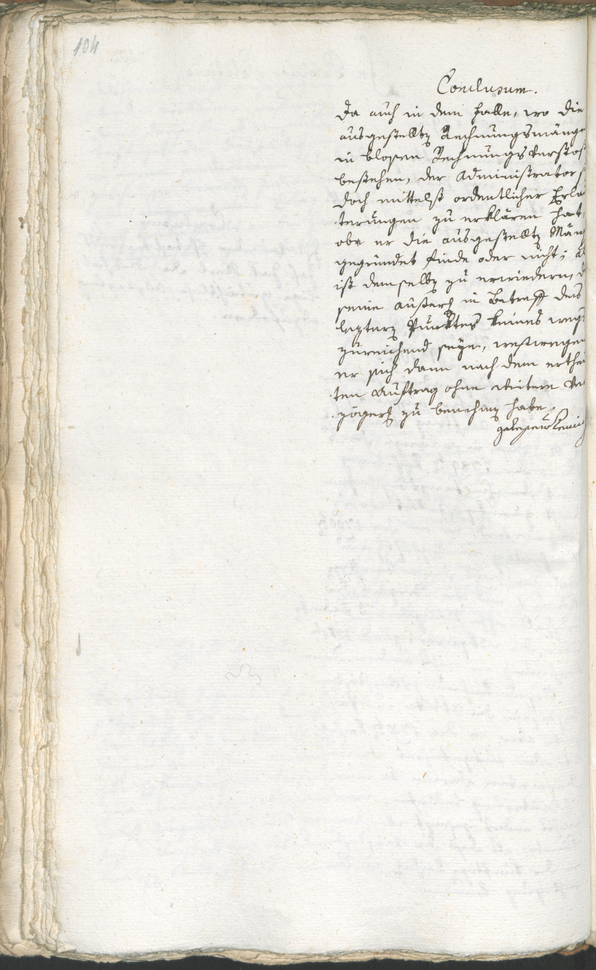 104
Conclusum.
Da auch in dem Falle, wo die
ausgestellte Rechnungsmänge
in blosen Rechnungsverstos
bestehen, der Administrator s
doch mittelst ordentlicher Erläu
terungen zu erklären hat
obe er die ausgestellte Män
gegründet finde oder nicht; al
ist demselben zu erwiedern, d
seine äußerung in Betreff des
leztern Punktes keines wegs
zureichend seye, weswegen
er sich dann nach dem erthei
ten Auftrag ohne weitere Ver
zögerung zu benehmen habe.